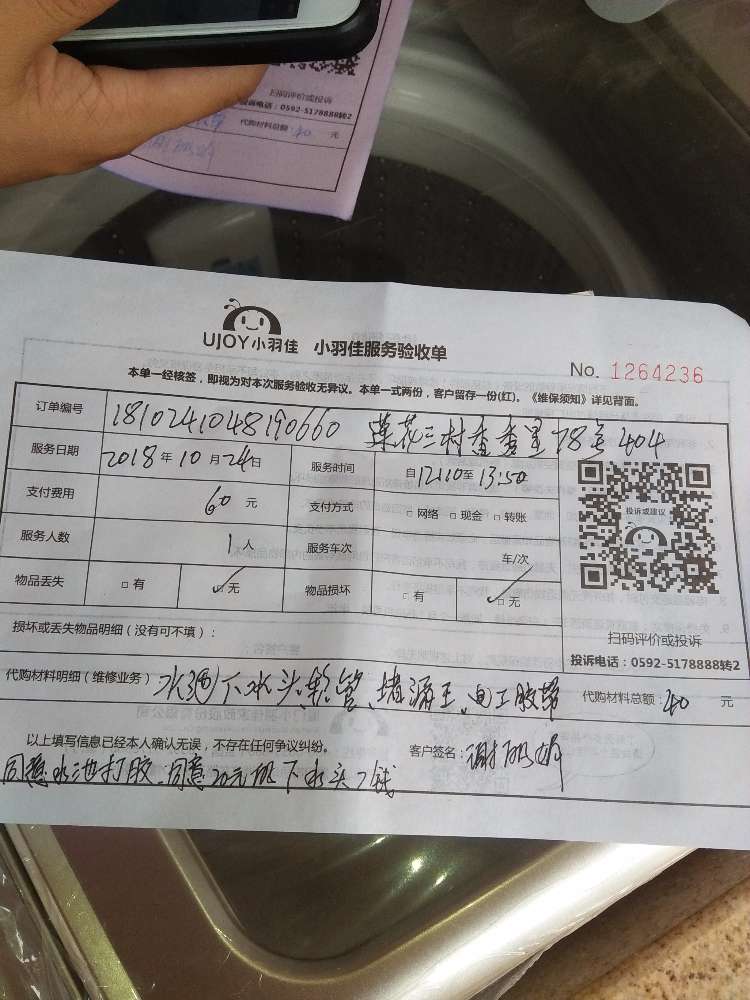 扫码评价或投诉
投诉电话：0592-5178888转2
代购材料总额：40 元
UJOY小羽佳 小羽佳服务验收单
No. 1264236
本单一经核签，即视为对本次服务验收无异议。本单一式两份，客户留存一份(红)。《维保须知》详见背面。
订单编号 1810241048190660 莲花三村香秀里78号404
服务日期 2018年10月24日 服务时间 自12:10至13:50
支付费用 60元 支付方式 □网络 □现金 □转账
投诉或建议
服务人数 1人 服务车次 车/次
物品丢失 □有 ☑无 物品损坏 □有 ☑无
扫码评价或投诉
损坏或丢失物品明细（没有可不填）：
投诉电话：0592-5178888转2
代购材料明细（维修业务） 水池下水头、软管、堵漏王、电工胶带 代购材料总额：40 元
以上填写信息已经本人确认无误，不存在任何争议纠纷。 客户签名：谢
同意水池打胶、同意20元 下水头 钱